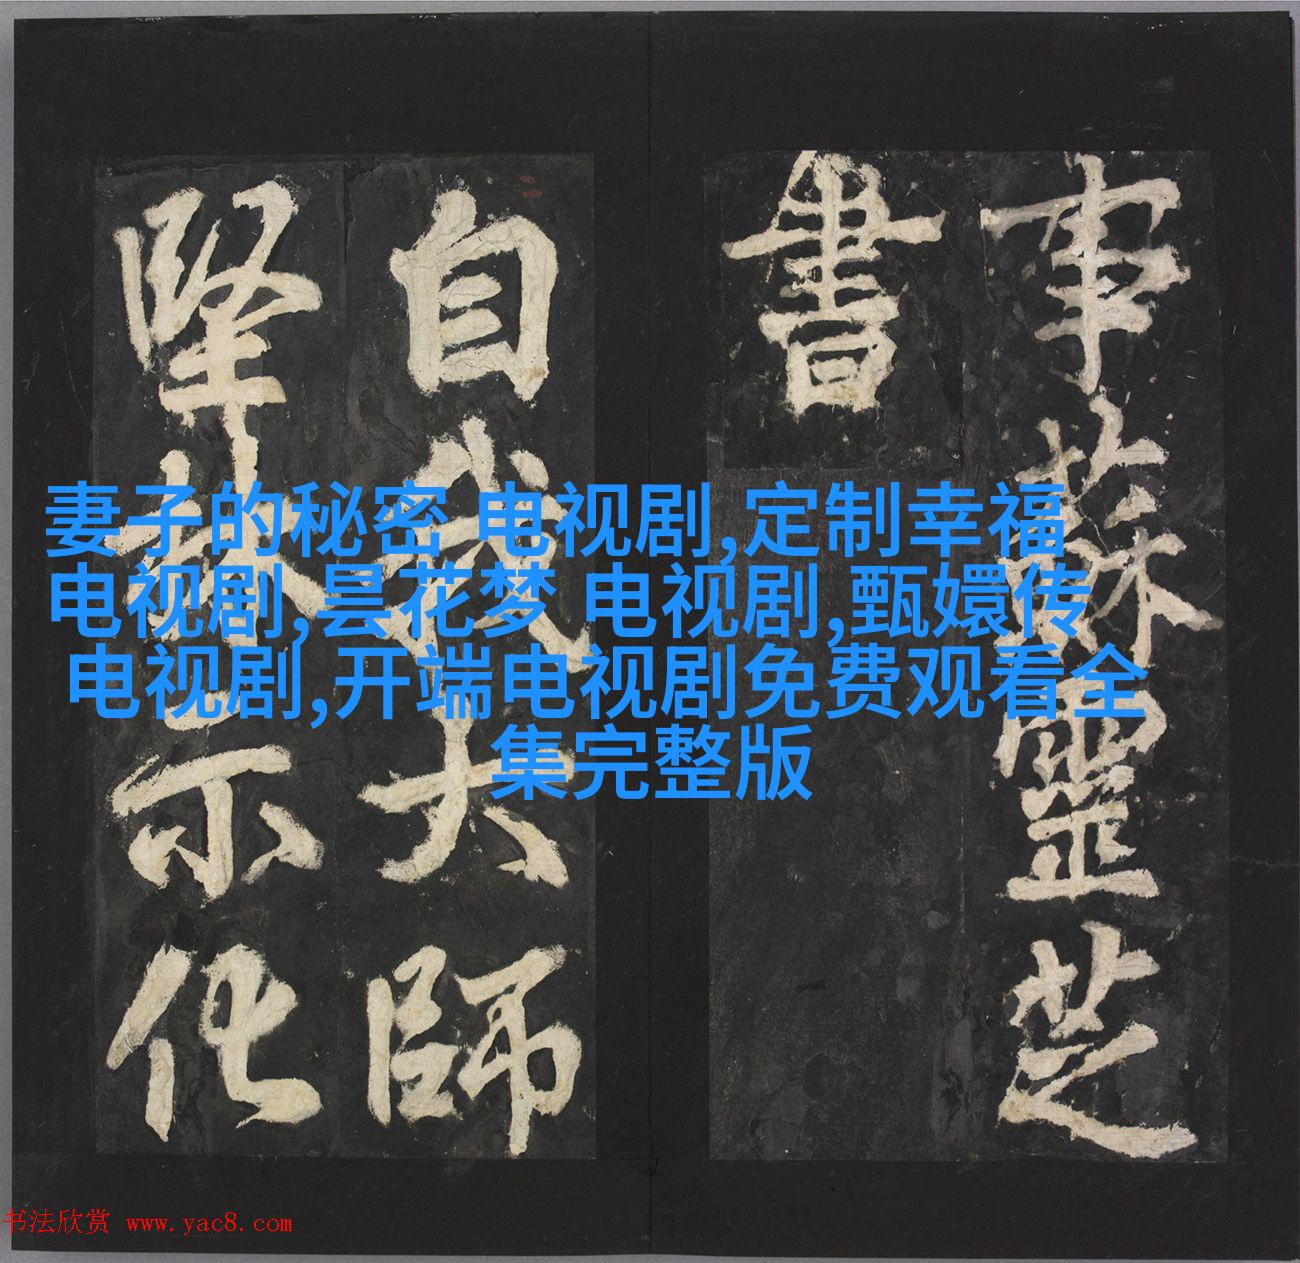 妻子的秘密 电视剧,定制幸福
电视剧,昙花梦 电视剧,甄嬛传
电视剧,开端电视剧免费观看全
集完整版
事蘇靈芝
書
自我大師
堅林示化
书法欣赏 www.yac8.com